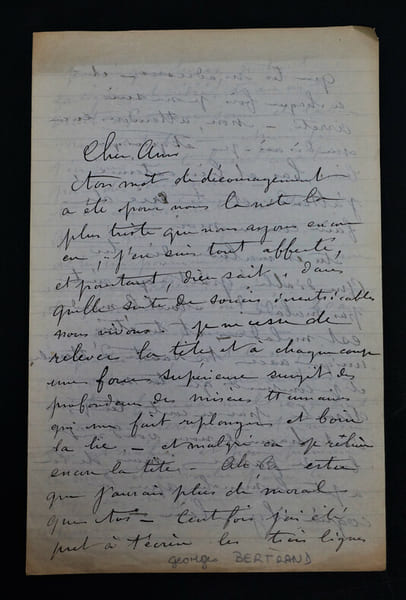 Cher Ami
ton mot de découragement
a été pour nous la note la
plus triste que nous ayons encore
eu, j'en suis tout affecté,
et pourtant, dieu sait, dans
quelle suite de soucis inextricables
nous vivons. je ne cesse de
relever la tête et à chaque coup
une force supérieure surgit des
profondeurs des misères Humaines
qui me fait replonger et boire
la lie, — et malgré ça je relève
encore la tête — est ce
que j'aurais plus de moral
que toi — Cent fois j'ai été
pret à t'écrire les trois lignes
georges BERTRAND